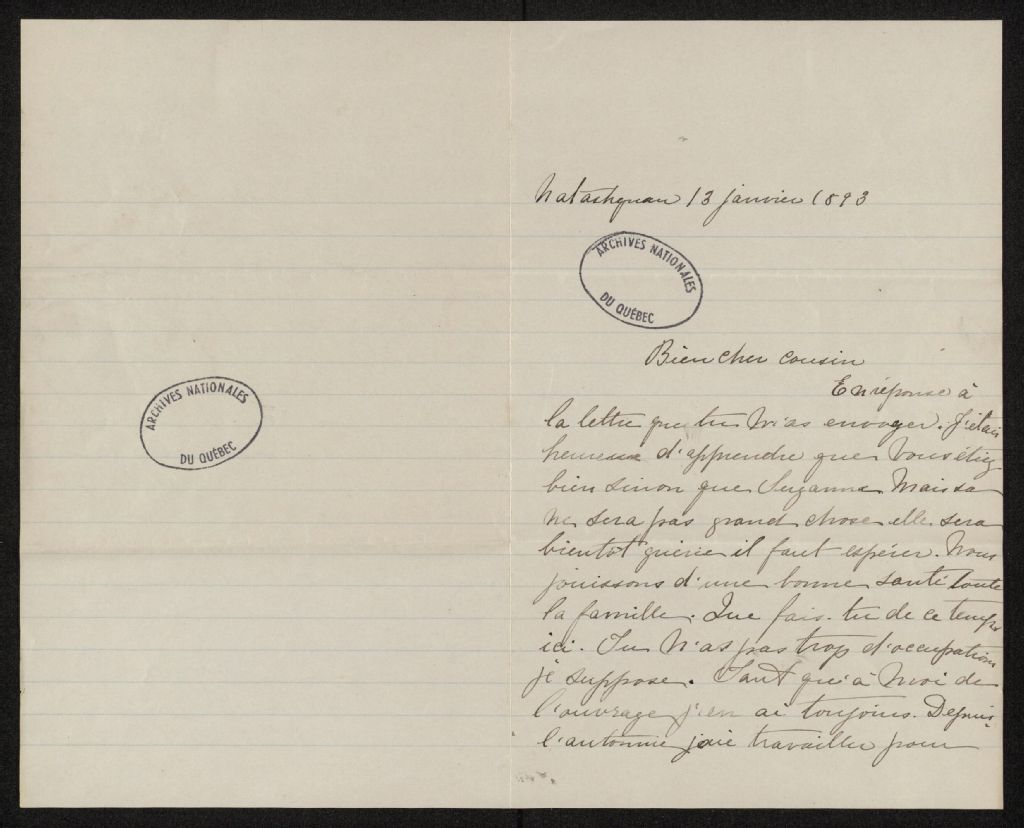 Natashquan 13 janvier 1893
ARCHIVES NATIONALES
DU QUÉBEC
Bien cher cousin
En réponse à
la lettre que tu m'as envoyer. J'étais
heureux d'apprendre que vous étiez
bien sinon que Suzanne. Mais sa
ne sera pas grand chose elle sera
bientot guérie il faut espérer. Nous
jouissons d'une bonne santé toute
la famille. Que fais-tu de ce temps
ici. Tu n'as pas trop d'occupation
je suppose. Tant qu'à moi de
l'ouvrage j'en ai toujours. Depuis
l'automne jaie travailler pour
ARCHIVES NATIONALES
DU QUÉBEC